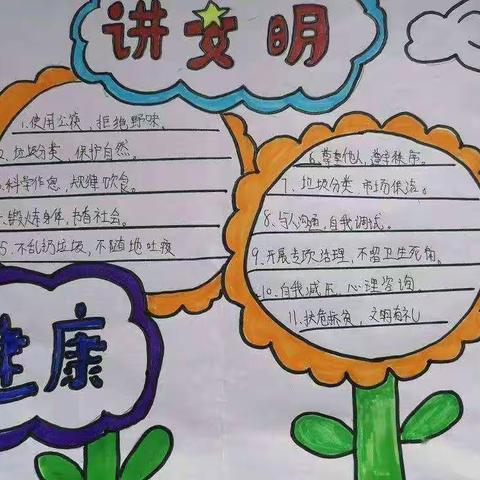 讲文明
1.使用公筷，拒绝野味。
2.垃圾分类，保护自然。
科学作息，规律饮食。
锻炼身体，书香社会。
5.不乱扔垃圾，不随地吐痰
6.尊重他人，遵守秩序。
7.垃圾分类，市场保洁。
8.与人沟通，自我调试。
9.开展专项治理，不留卫生死角。
10.自我减压，心理咨询。
11.扶危振贫，文明有礼
健康